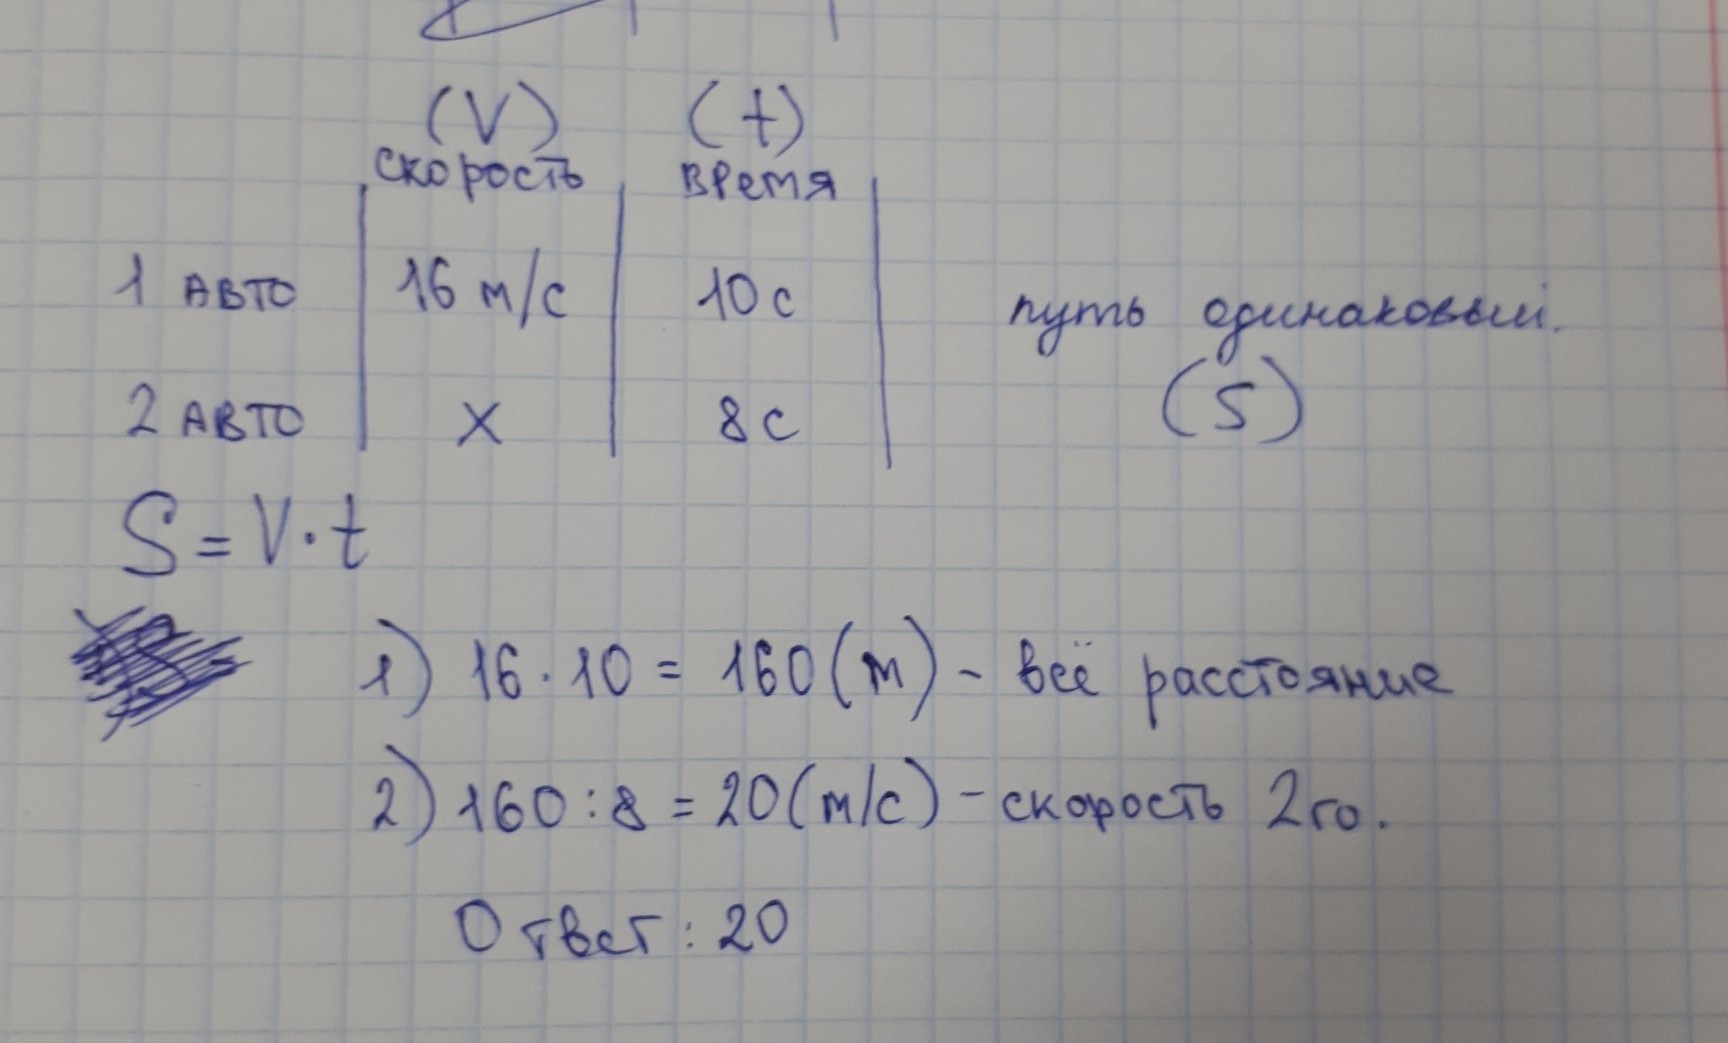 (V) (t)
скорость время
1 авто 16 м/с 10с путь одинаковый.
(S)
2 авто х 8с
S=V·t
1) 16·10 = 160(м) - всё расстояние
2) 160:8 = 20(м/с) - скорость 2го.
Ответ: 20